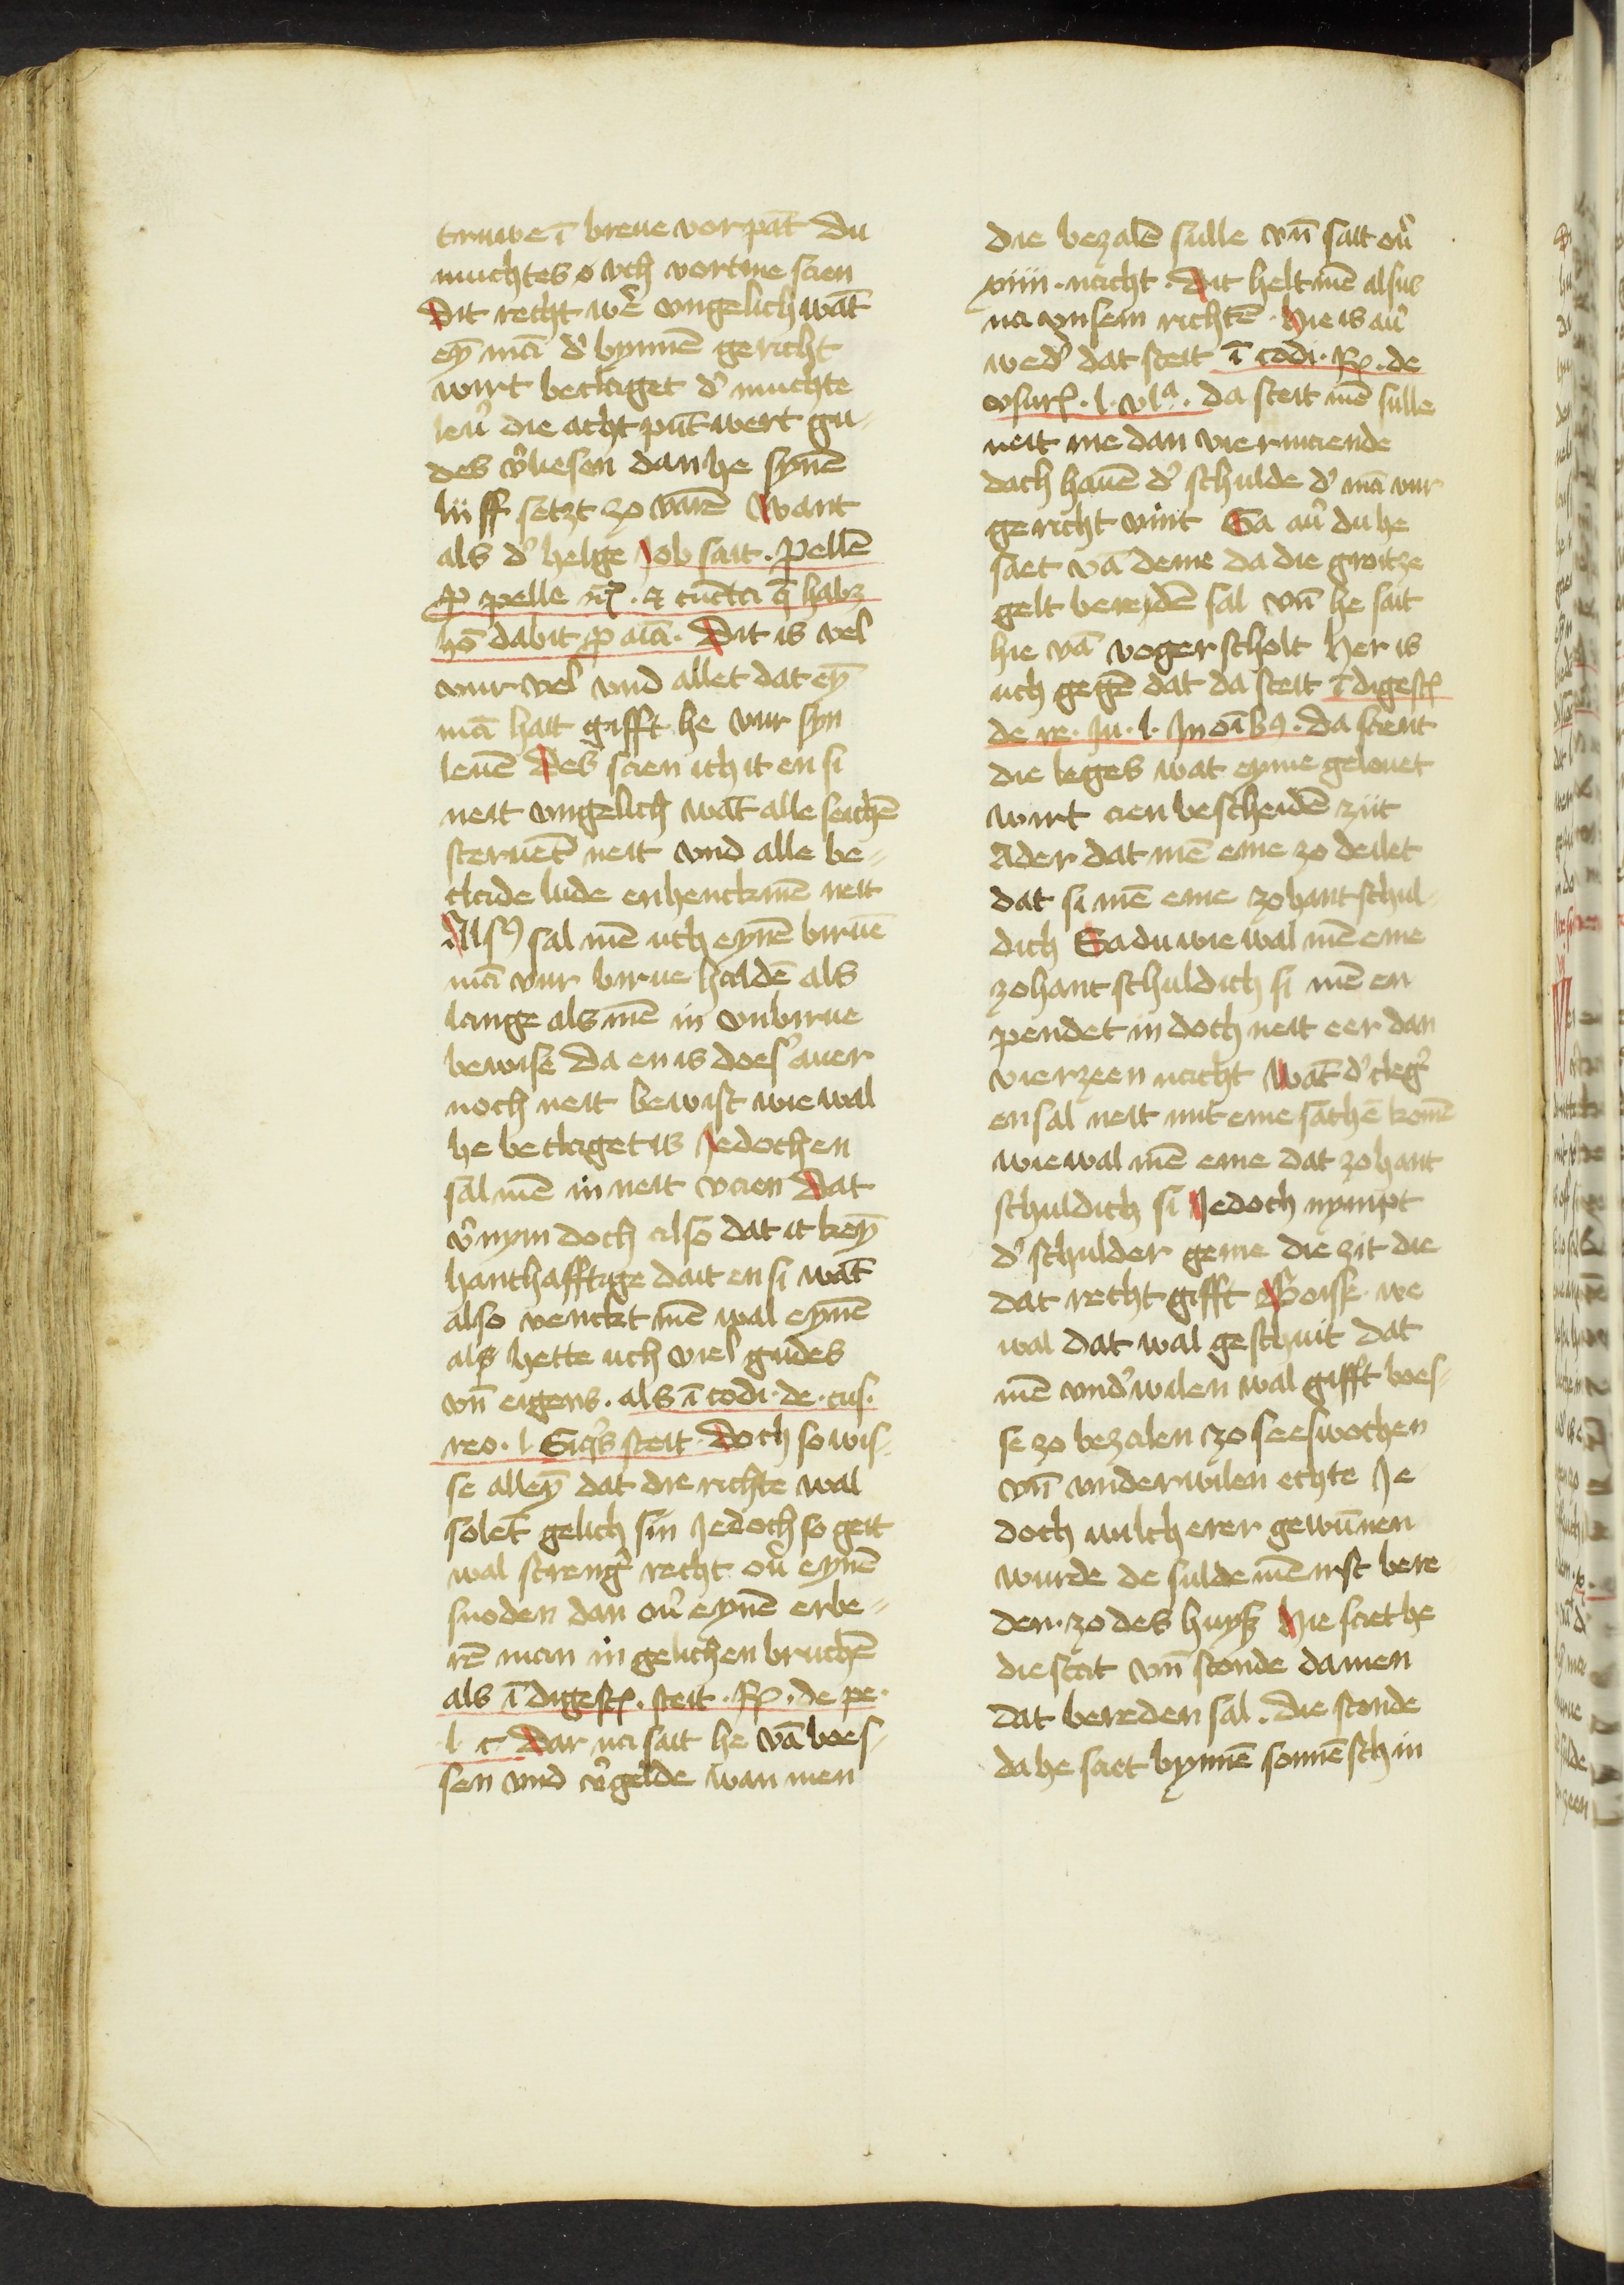 truwe ī breue vorpāt Du
muchtes o vch vortme scien
Dit recht wē vngelich wāt
eyn̄ mā d' bynnē gericht
wirt beclaget d' muchte
leū die acht pūt wert gu-
des v'liesen dan he synē
liiff setzt zo varē Want
als d' helge Job sait . pellē
ꝑ pelle ꝛ . cūcta q̄ habꝫ
hō dabit ꝓ aīa . Dit is vel
vmr vel vnd allet dat eyn̄
mā hait gifft he vur syn
leuē Des scien ich it en si
neit vngelich wāt alle seichē
steruēt neit vnd alle be-
clade lude enhenckmē neit
Als9 sal mē uch eynē biruē
mā vur birue haldē als
lange als mē in vnbirue
bewise Da en is does auer
noch neit bewist wie wal
he beclaget is Jedoch en
sal mē in neit vaen Dat
v'nym doch also dat it keyn̄
hanthafftige dait en si wāt
also venckt mē wal eynē
als hette uch viel gudes
vn̄ eigens . als ī codi . de . cus .
reo . l Siqs steit . Doch so wis-
se alleyn̄ dat die richte wal
solēt gelich sin Jedoch so geit
wal streng' recht ou' eynē
snoden dan ou' eynē erbe-
rē man in gelichen bruchē
als ī digest . steit . R . de pe .
l c Dar na sait he vā boes-
sen vnd v'gelde wan men
die bezalē sulle vn̄ sait ou'
viiii . nacht . Dit helt mē alsus
na vnsem richtē . Hie is au'
wed' dat steit ī codi . R . de
vsur . l . vla . da steit mē sulle
neit me dan vier maende
dach hauē d' schulde d' mā vur
gericht vint Sa au' du he
saet vā deme da die groitze
gelt beredē sal vn̄ he sait
hie vā voger scholt Her is
uch gegē dat da steit ī digest
de re . iu . l . In oībꝰ . da steit
die leges wat eyme gelouet
wirt aen bescheidē ziit
Ader dat mē eme zo deilet
dat si mē eme zohant schul-
dich Sa du wie wal mē eme
zohant schuldich si mē en
pendet in doch neit eer dan
vierzeen nacht Wāt d' cleg'
en sal neit mit eme sachē komē
wie wal mē eme dat zohant
schuldich si Jedoch nympt
d' schulder geme die zit die
dat recht gifft Boisß . we
wal dat wal geschuit dat
mē vnd'wilen wal gifft boes-
se zo bezalen zo sees wochen
vn̄ vnderwilen echte Je
doch wilch erer gewūnen
wurde de sulde mē irst bere
den . zo des huyß Hie saet he
die stat vn̄ stonde da men
dat bereden sal . die stonde
da he saet bynnē sonnē schin